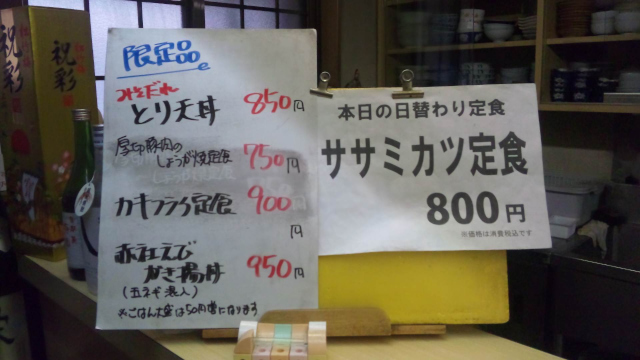 祝彩
祝彩
限定品
みそだれ
とり天丼 850円
厚切豚肉の
しょうが焼定食 750円
カキフライ定食 900円
円
赤社えび
かき揚丼 950円
(玉ネギ混入)
※ごはん大盛は50円増になります
本日の日替わり定食
ササミカツ定食
800円
※価格は消費税込です